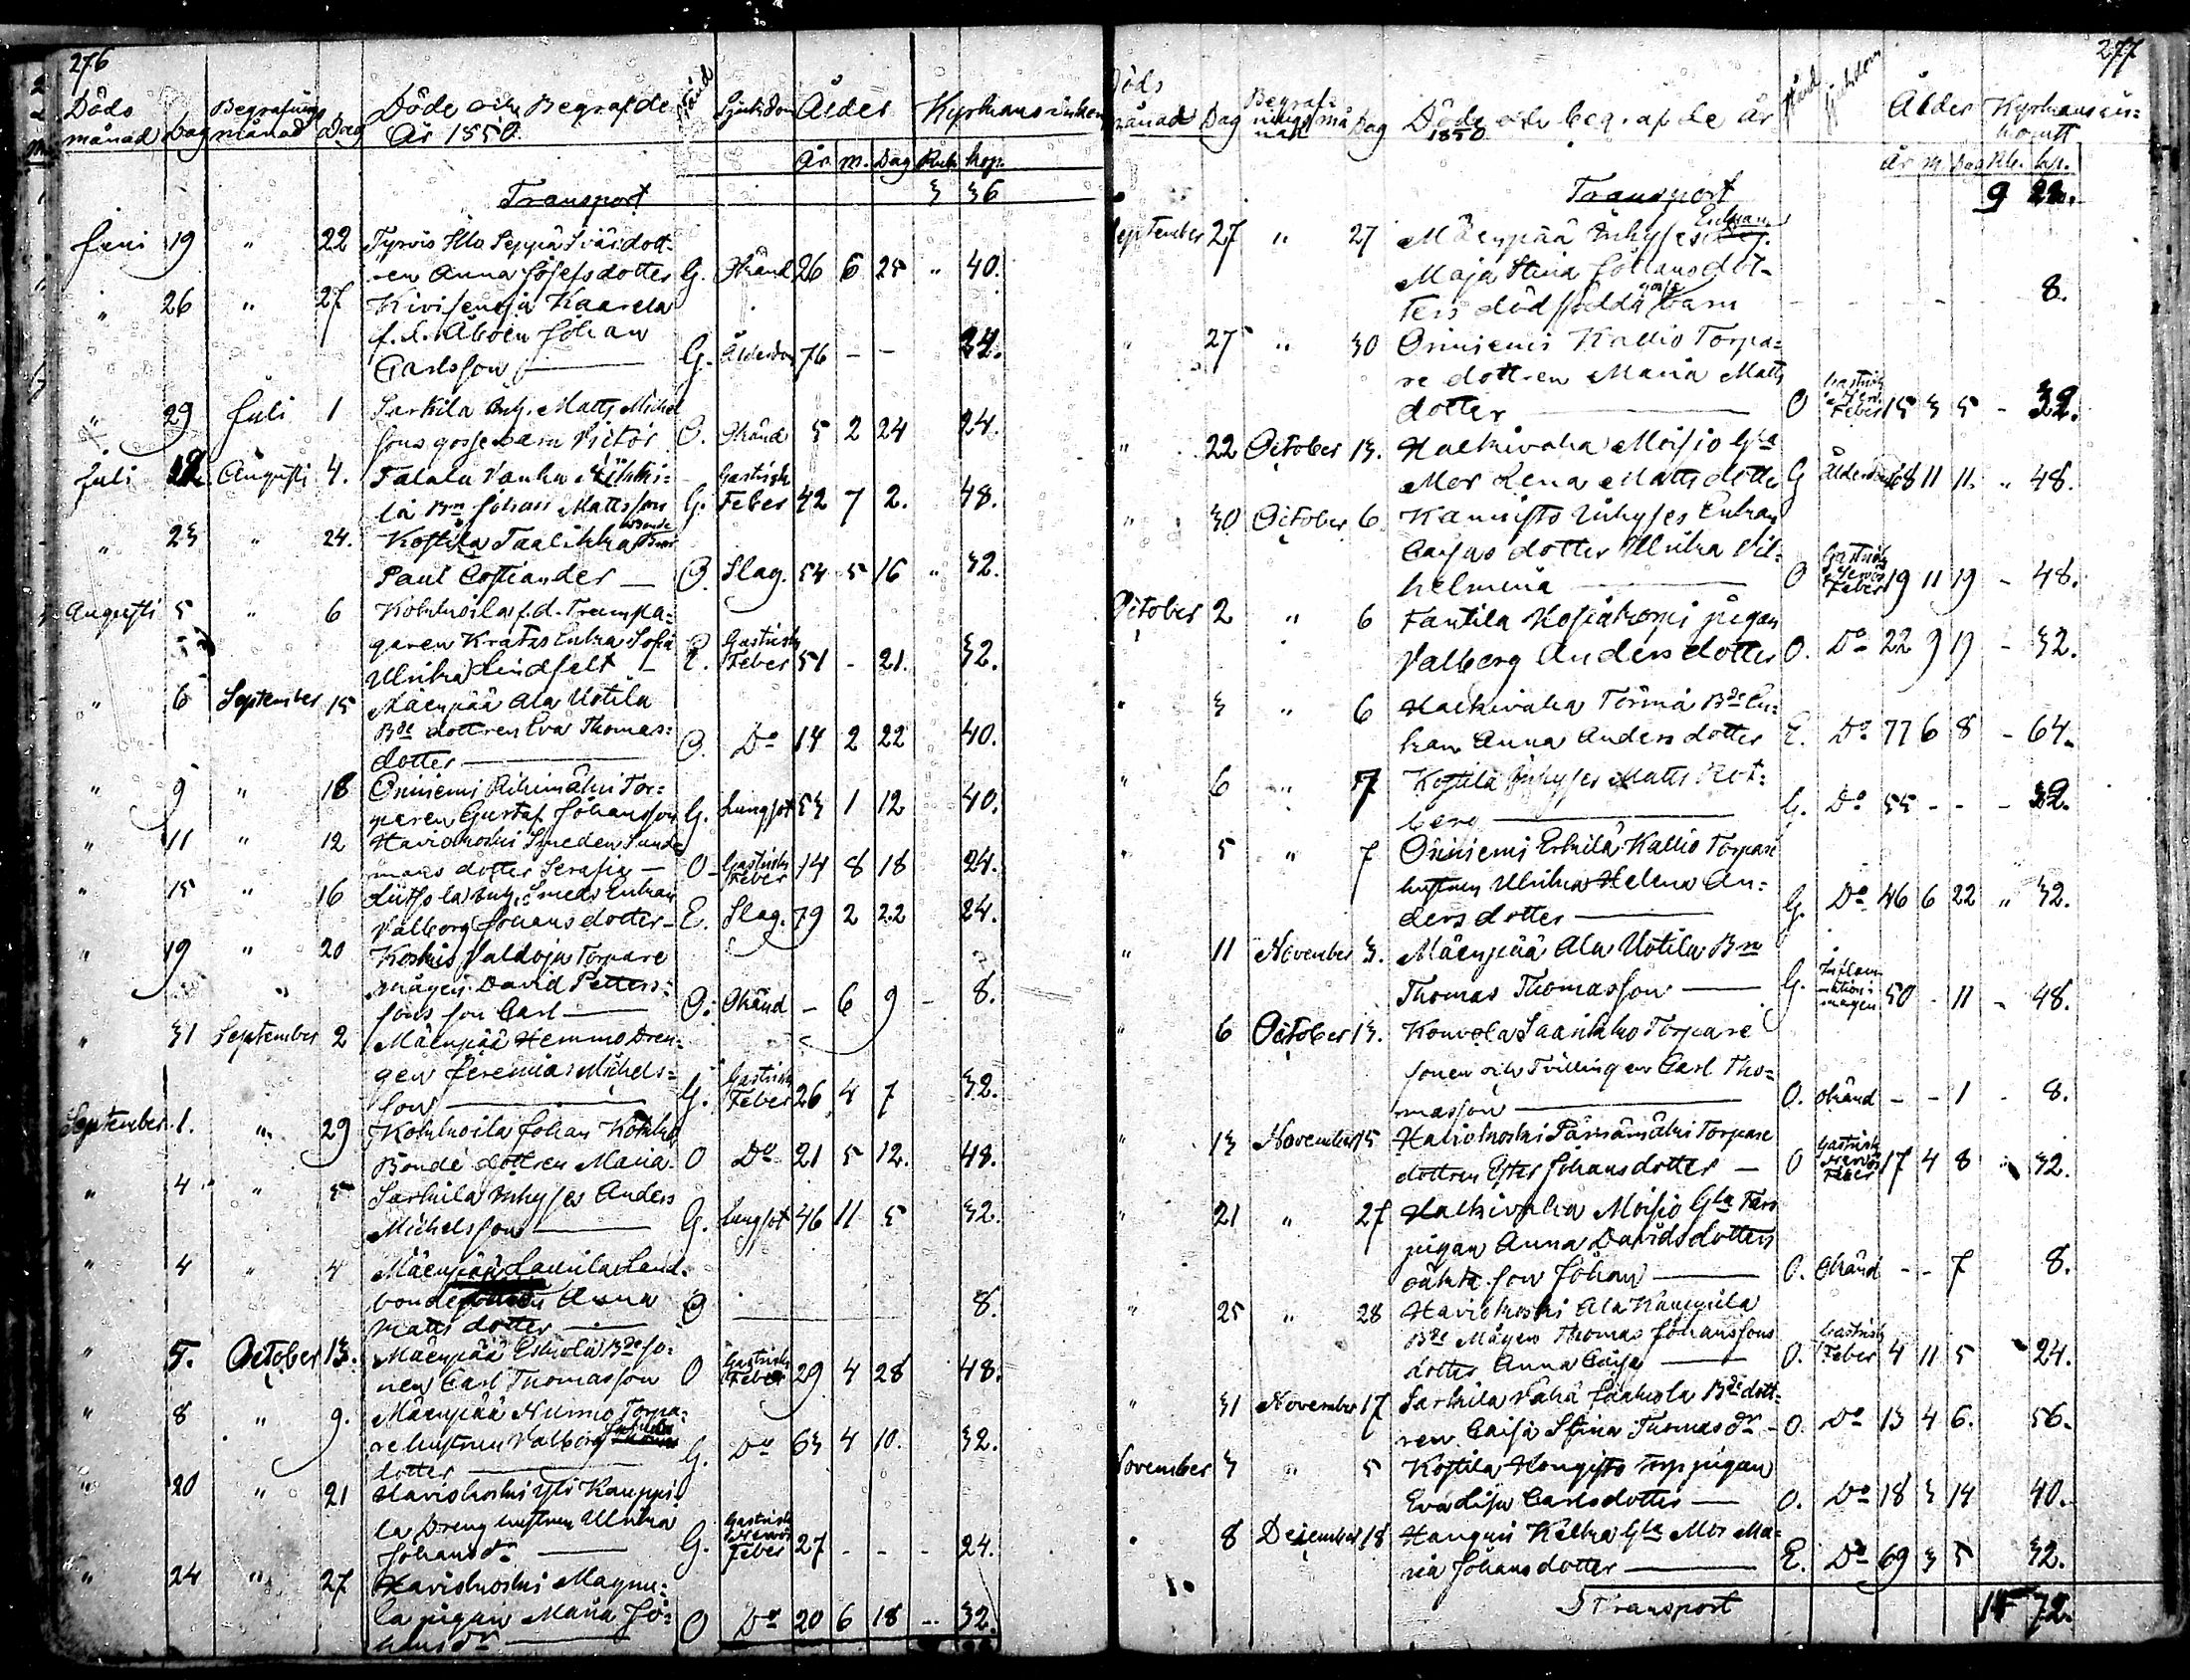 276
Döds månad Dag Begrafnings månad Dag Döde och Begrafde År 1850. Stånd Sjukdom Ålder Kyrkans inkom
År m. Dag Rub. kop.
Transport 3 36
Juni 19 " 22 Tyrvis Illo Seppä Svärdott-
ren Anna Josefsdotter G. Okänd 26 6 25 " 40.
" 26 " 27 Kivisenoja Kaarela
f.d. Åboen Johan
Carlsson G. Ålderdom 76 - - 24.
" 29 Juli 1 Sarkila Inh. Matts Michel
sons gossebarn Victor O. Okänd 5 2 24 24.
Juli Augusti 4. Talala Vanha
la Bn Johan Mattsson G. Gastrisk Feber 42 7 2. 48.
" 23 " 24. Kostila Taalikka Bonde
Paul Costiander O. Slag. 54 5 16 " 32.
Augusti 5 " 6 Kokkoila f.d. Trumpa-
garen Kratzs Enka Sofia
Ulrika Lindfelt E. Gastrisk Feber 51 - 21. 32.
" 6 September 15 Mäenpää Ala Uotila
Bde dottren Eva Thomas-
dotter O. Do 14 2 22 40.
" 9 " 18 Oriniemi Riihimäki Tor-
paren Gustaf Johansson G. Lungsot 53 1 12 40.
" 11 " 12 Haviokoski Smeden Sund
mans dotter Serafia O. Gastrisk Feber 14 8 18 24.
" 15 " 16 Liuttola Inh. Smeds Enkan
Valborg Johansdotter E. Slag. 79 2 22 24.
" 19 " 20 Koskis Valdoja Torpare
mågen David Petters-
sons son Carl O. Okänd - 6 9 - 8.
" 31 September 2 Mäenpää Hemmo Dren-
gen Jeremias Michels-
son G. Gastrisk Feber 26 4 7 32.
September 1. " 29 Kokkoila Johan Kokko
Bonde dottren Maria O Do 21 5 12. 48.
" 4 " 5 Sarkila Inhyses Anders
Michelsson G. Lungsot 46 11 5 32.
" 4 " 4 Mäenpää Laurila Land-
bonde Anna
Matts dotter O 8.
" 5. October 13. Mäenpää Eskola Bde so-
nen Carl Thomasson O Gastrisk Feber 29 4 28 48.
" 8 " 9. Mäenpää Nummo Torpa-
re hustrun Valborg
dotter G. Do 63 4 10. 32.
" 20 " 21 Haviokoski Yli Kauppi-
la Dreng hustrun Ulrika
Johansdr G. Gastrisk Nervös Feber 27 - - - 24.
" 24 " 27 Haviokoski Magnu-
la pigan Maria Jo-
hansdr O Do 20 6 18 - 32.
277
Döds månad Dag Begrafningsmånad Dag Döde och begrafde år 1850 Stånd Sjukdom Ålder Kyrkans in-
komst
år m Dag Rb. kp.
Transport 9
September 27 " 27 Mäenpää Inhyses Enkan
Maja Stina Johansdot-
ters dödfödda gosse barn - - - - 8.
" 27 " 30 Oriniemi Kallio Torpa-
re dottren Maria Matts
dotter O Gastrisk Nerv. Feber 15 3 5 - 32.
" 22 October 13. Halkivaha Moisio Gla
Mor Lena Matts dotter G Ålderdom 68 11 11. " 48.
" 30 October 6 Kamisto Inhyses Enkan
Caisas dotter Ulrika Vil-
helmina O Gastrisk Nervös Feber 19 11 19 - 48.
October 2 " 6 Tantila pigan
Valborg Andersdotter O. Do 22 9 19 - 32.
" 3 " 6 Halkivaha Törmä Bde En-
kan Anna Andersdotter E. Do 77 6 8 - 64.
" 6 " 7 Kostila Inhyses Matts Rot-
berg G. Do 55 - - - 32.
" 5 " 7 Oriniemi Erkilä Kallio Torpare
hustrun Ulrika Helena An-
dersdotter G. Do 46 6 22 " 32.
" 11 November 3. Mäenpää Ala Uotila Bn
Thomas Thomasson G. Inflammation i magen 50 - 11 - 48.
" 6 October 13. Kouvola Saarikko Torpare
sonen och Tvillingen Carl Tho-
masson O. Okänd - - 1 - 8.
" 13 November 15 Haviokoski Pärnämäki Torpare
dottren Ester Johansdotter O Gastrisk Nervös Feber 17 4 8 " 32.
" 21 " 27 Halkivaha Moisio Gla Fars
pigan Anna Davidsdotters
oäkta son Johan O. Okänd - - 7 8.
" 25 " 28 Haviokoski Ala Kauppila
Bde Mågen Thomas Johanssons
dotter Anna Caisa O. Gastrisk Feber 4 11 5 24.
" 31 November 17 Sarkila Vähä Jaakola Bde dott-
ren Caisa Stina Thomasdr - O. Do 13 4 6. 56.
November 3 " 5 Kostila Hongisto Torp pigan
Eva Lisa Carlsdotter O. Do 18 3 14 40.
" 8 December 18 Hanguis Kelka Gla Mor Ma-
ria Johansdotter E. Do 69 3 5 32.
Transport 15 72.